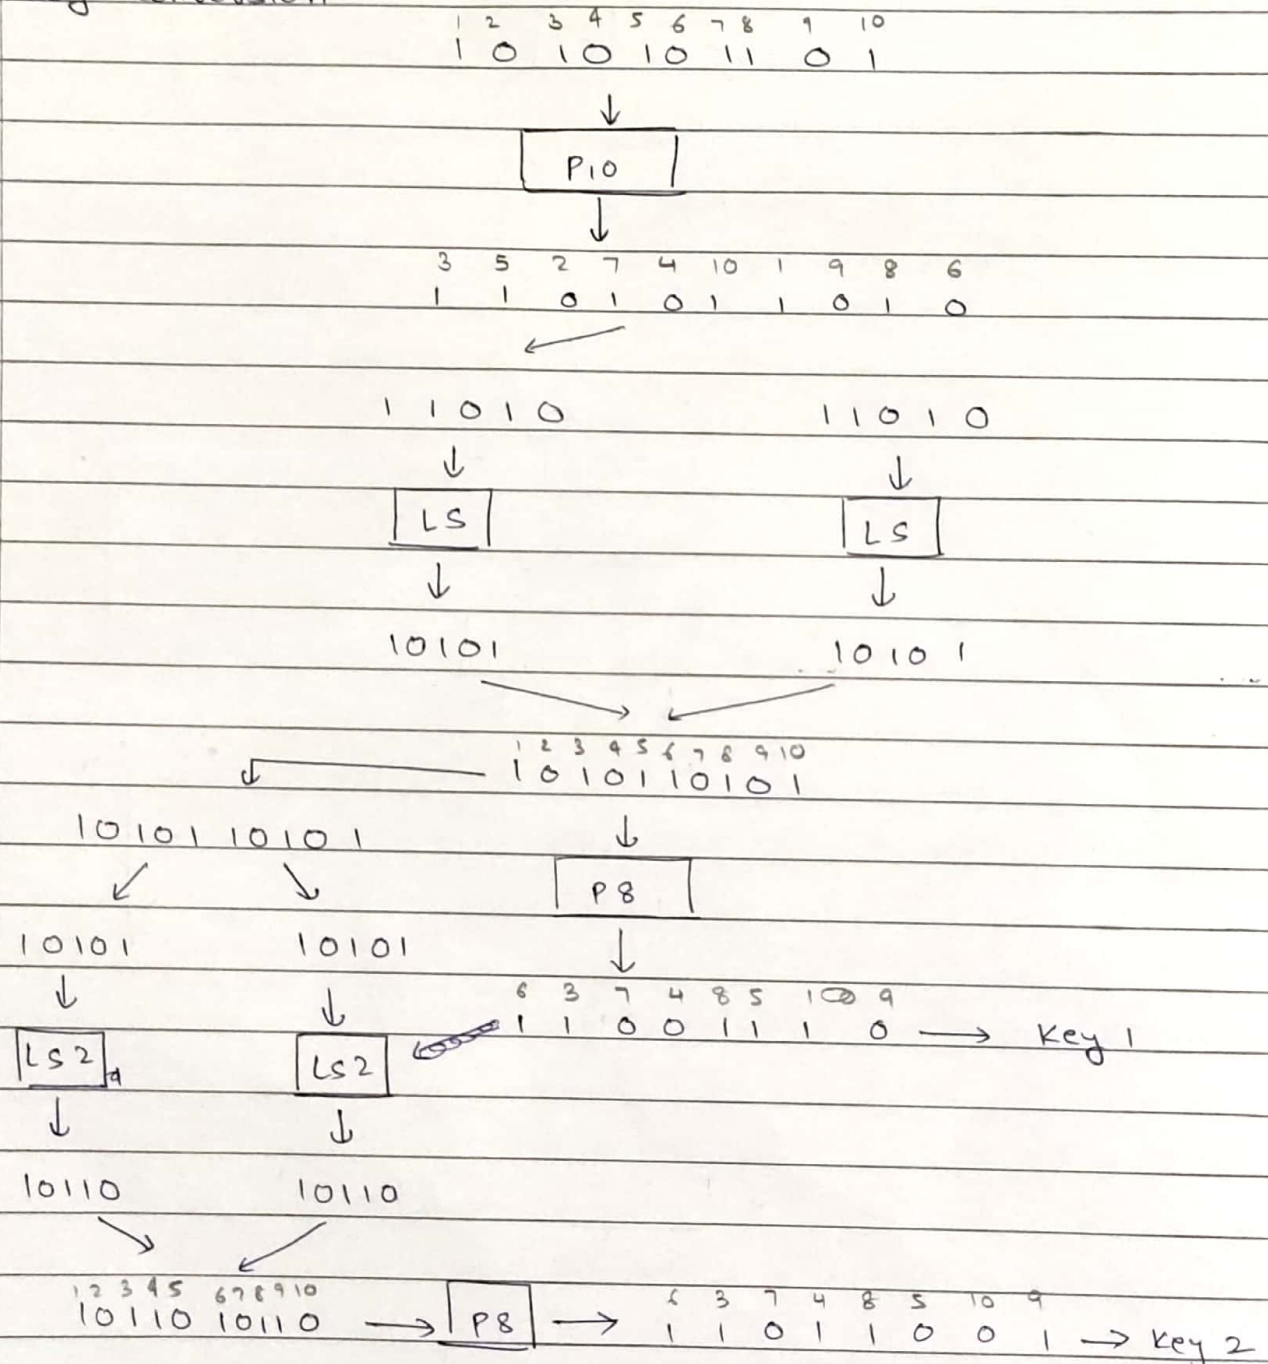 1 2 3 4 5 6 7 8 9 10
1 0 1 0 1 0 1 1 0 1
P10
3 5 2 7 4 10 1 9 8 6
1 1 0 1 0 1 1 0 1 0
1 1 0 1 0 1 1 0 1 0
LS LS
10101 10101
1 2 3 4 5 6 7 8 9 10
1 0 1 0 1 1 0 1 0 1
10101 10101
P8
10101 10101
6 3 7 4 8 5 10 9
1 1 0 0 1 1 1 0 → Key 1
LS2 LS2
10110 10110
1 2 3 4 5 6 7 8 9 10
10110 10110 → P8 →
6 3 7 4 8 5 10 9
1 1 0 1 1 0 0 1 → Key 2